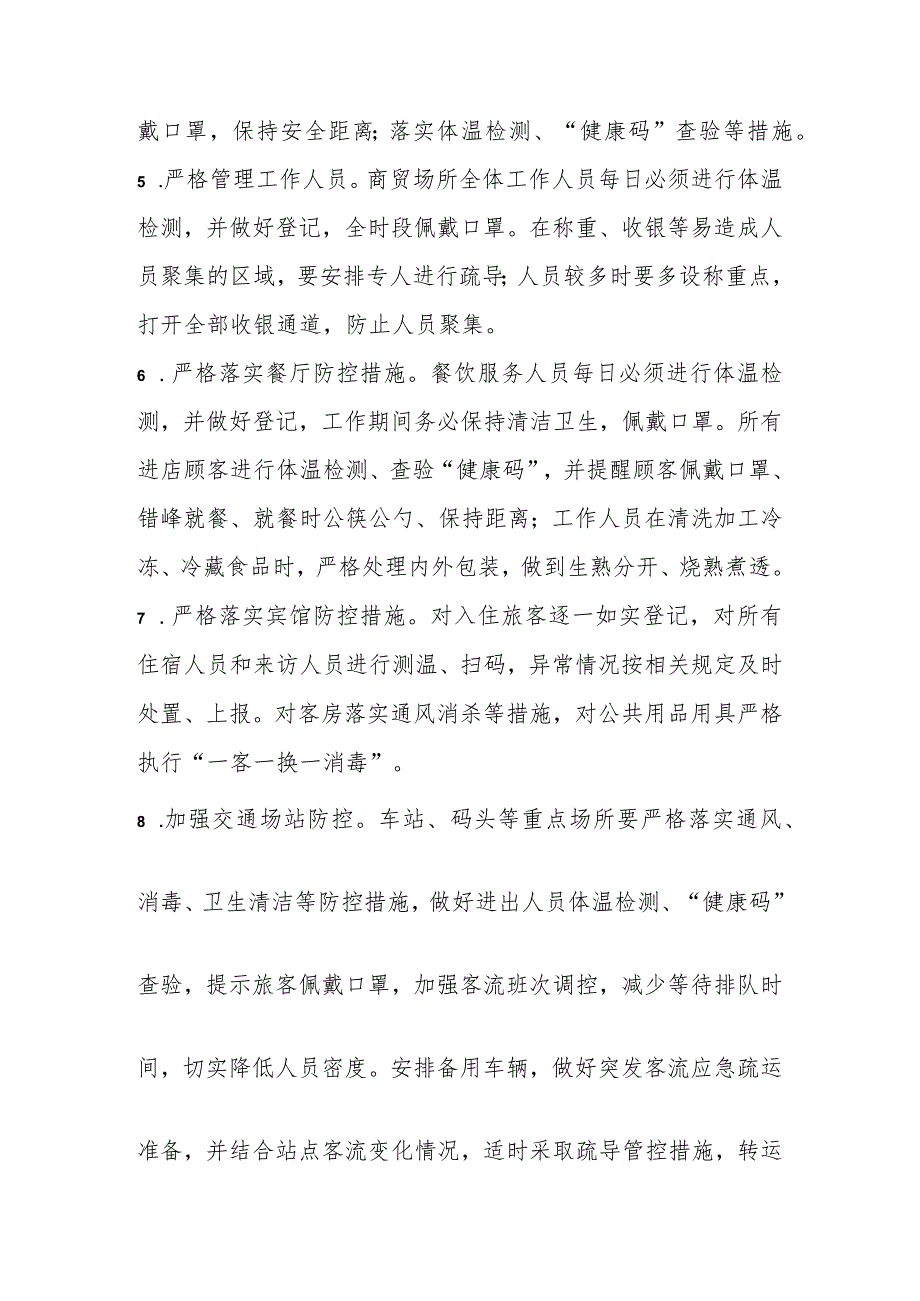 戴口罩，保持安全距离；落实体温检测、“健康码”查验等措施。
5 .严格管理工作人员。商贸场所全体工作人员每日必须进行体温
检测，并做好登记，全时段佩戴口罩。在称重、收银等易造成人
员聚集的区域，要安排专人进行疏导；人员较多时要多设称重点，
打开全部收银通道，防止人员聚集。
6 .严格落实餐厅防控措施。餐饮服务人员每日必须进行体温检
测，并做好登记，工作期间务必保持清洁卫生，佩戴口罩。所有
进店顾客进行体温检测、查验“健康码”，并提醒顾客佩戴口罩、
错峰就餐、就餐时公筷公勺、保持距离；工作人员在清洗加工冷
冻、冷藏食品时，严格处理内外包装，做到生熟分开、烧熟煮透。
7 .严格落实宾馆防控措施。对入住旅客逐一如实登记，对所有
住宿人员和来访人员进行测温、扫码，异常情况按相关规定及时
处置、上报。对客房落实通风消杀等措施，对公共用品用具严格
执行“一客一换一消毒”。
8 .加强交通场站防控。车站、码头等重点场所要严格落实通风、
消毒、卫生清洁等防控措施，做好进出人员体温检测、“健康码”
查验，提示旅客佩戴口罩，加强客流班次调控，减少等待排队时
间，切实降低人员密度。安排备用车辆，做好突发客流应急疏运
准备，并结合站点客流变化情况，适时采取疏导管控措施，转运